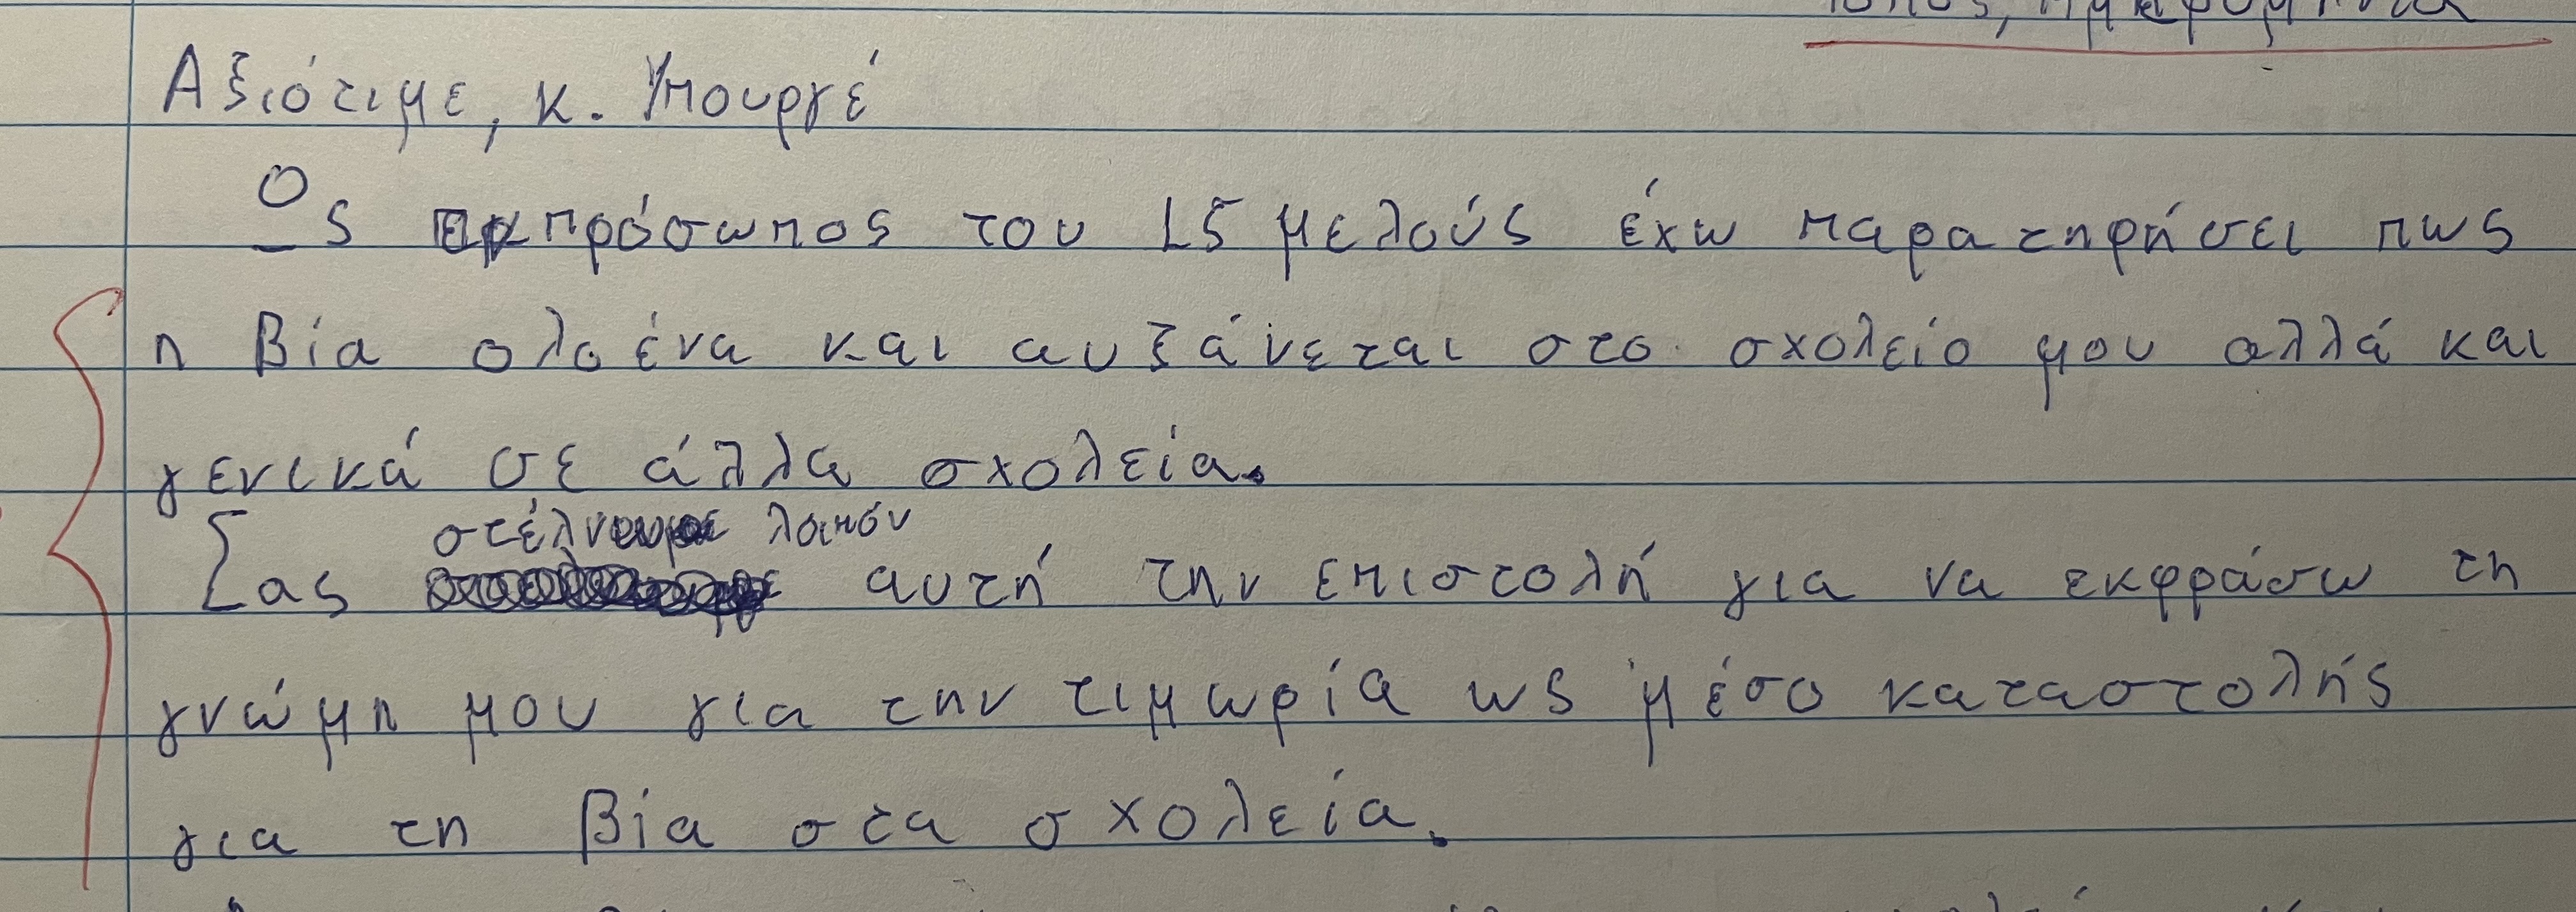 τόπος, ημερομηνία
Αξιότιμε, κ. Υπουργέ
Ως εκπρόσωπος του 15 μελούς έχω παρατηρήσει πως
η βία ολοένα και αυξάνεται στο σχολείο μου αλλά και
γενικά σε άλλα σχολεία.
στέλνουμε λοιπόν
Σας αυτή την επιστολή για να εκφράσω τη
γνώμη μου για την τιμωρία ως μέσο καταστολής
για τη βία στα σχολεία.